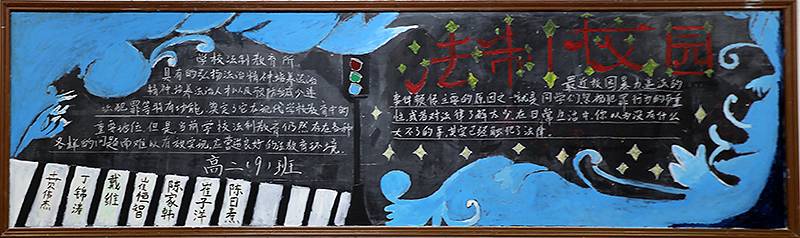 学校法制教育所
具有的弘扬法治精神培养法治
精神培养法治人才以及预防减少违
法犯罪等特有功能,奠定了它在现代学校教育中的
重要地位,但是当前学校法制教育仍然存在各种
各样的问题而难以有放实现,应营造良好的法教育环境。
高二(9)班
丁锦涛
戴维
崔恒智
陈家韩
崔子洋
陈日熹
法制校园
最近校园暴力违法的
事件频传主要的原因之一就是同学们忽视犯罪行为的严重
性或者对法律了解太少,在日常生活中,你以为没有什么
大不了的事,其实已经触犯了法律。